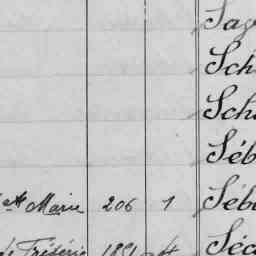 Sag
Sch
Sch
Séb
te Marie 206 1 Séb
de Frédéric 1891 4 Séc